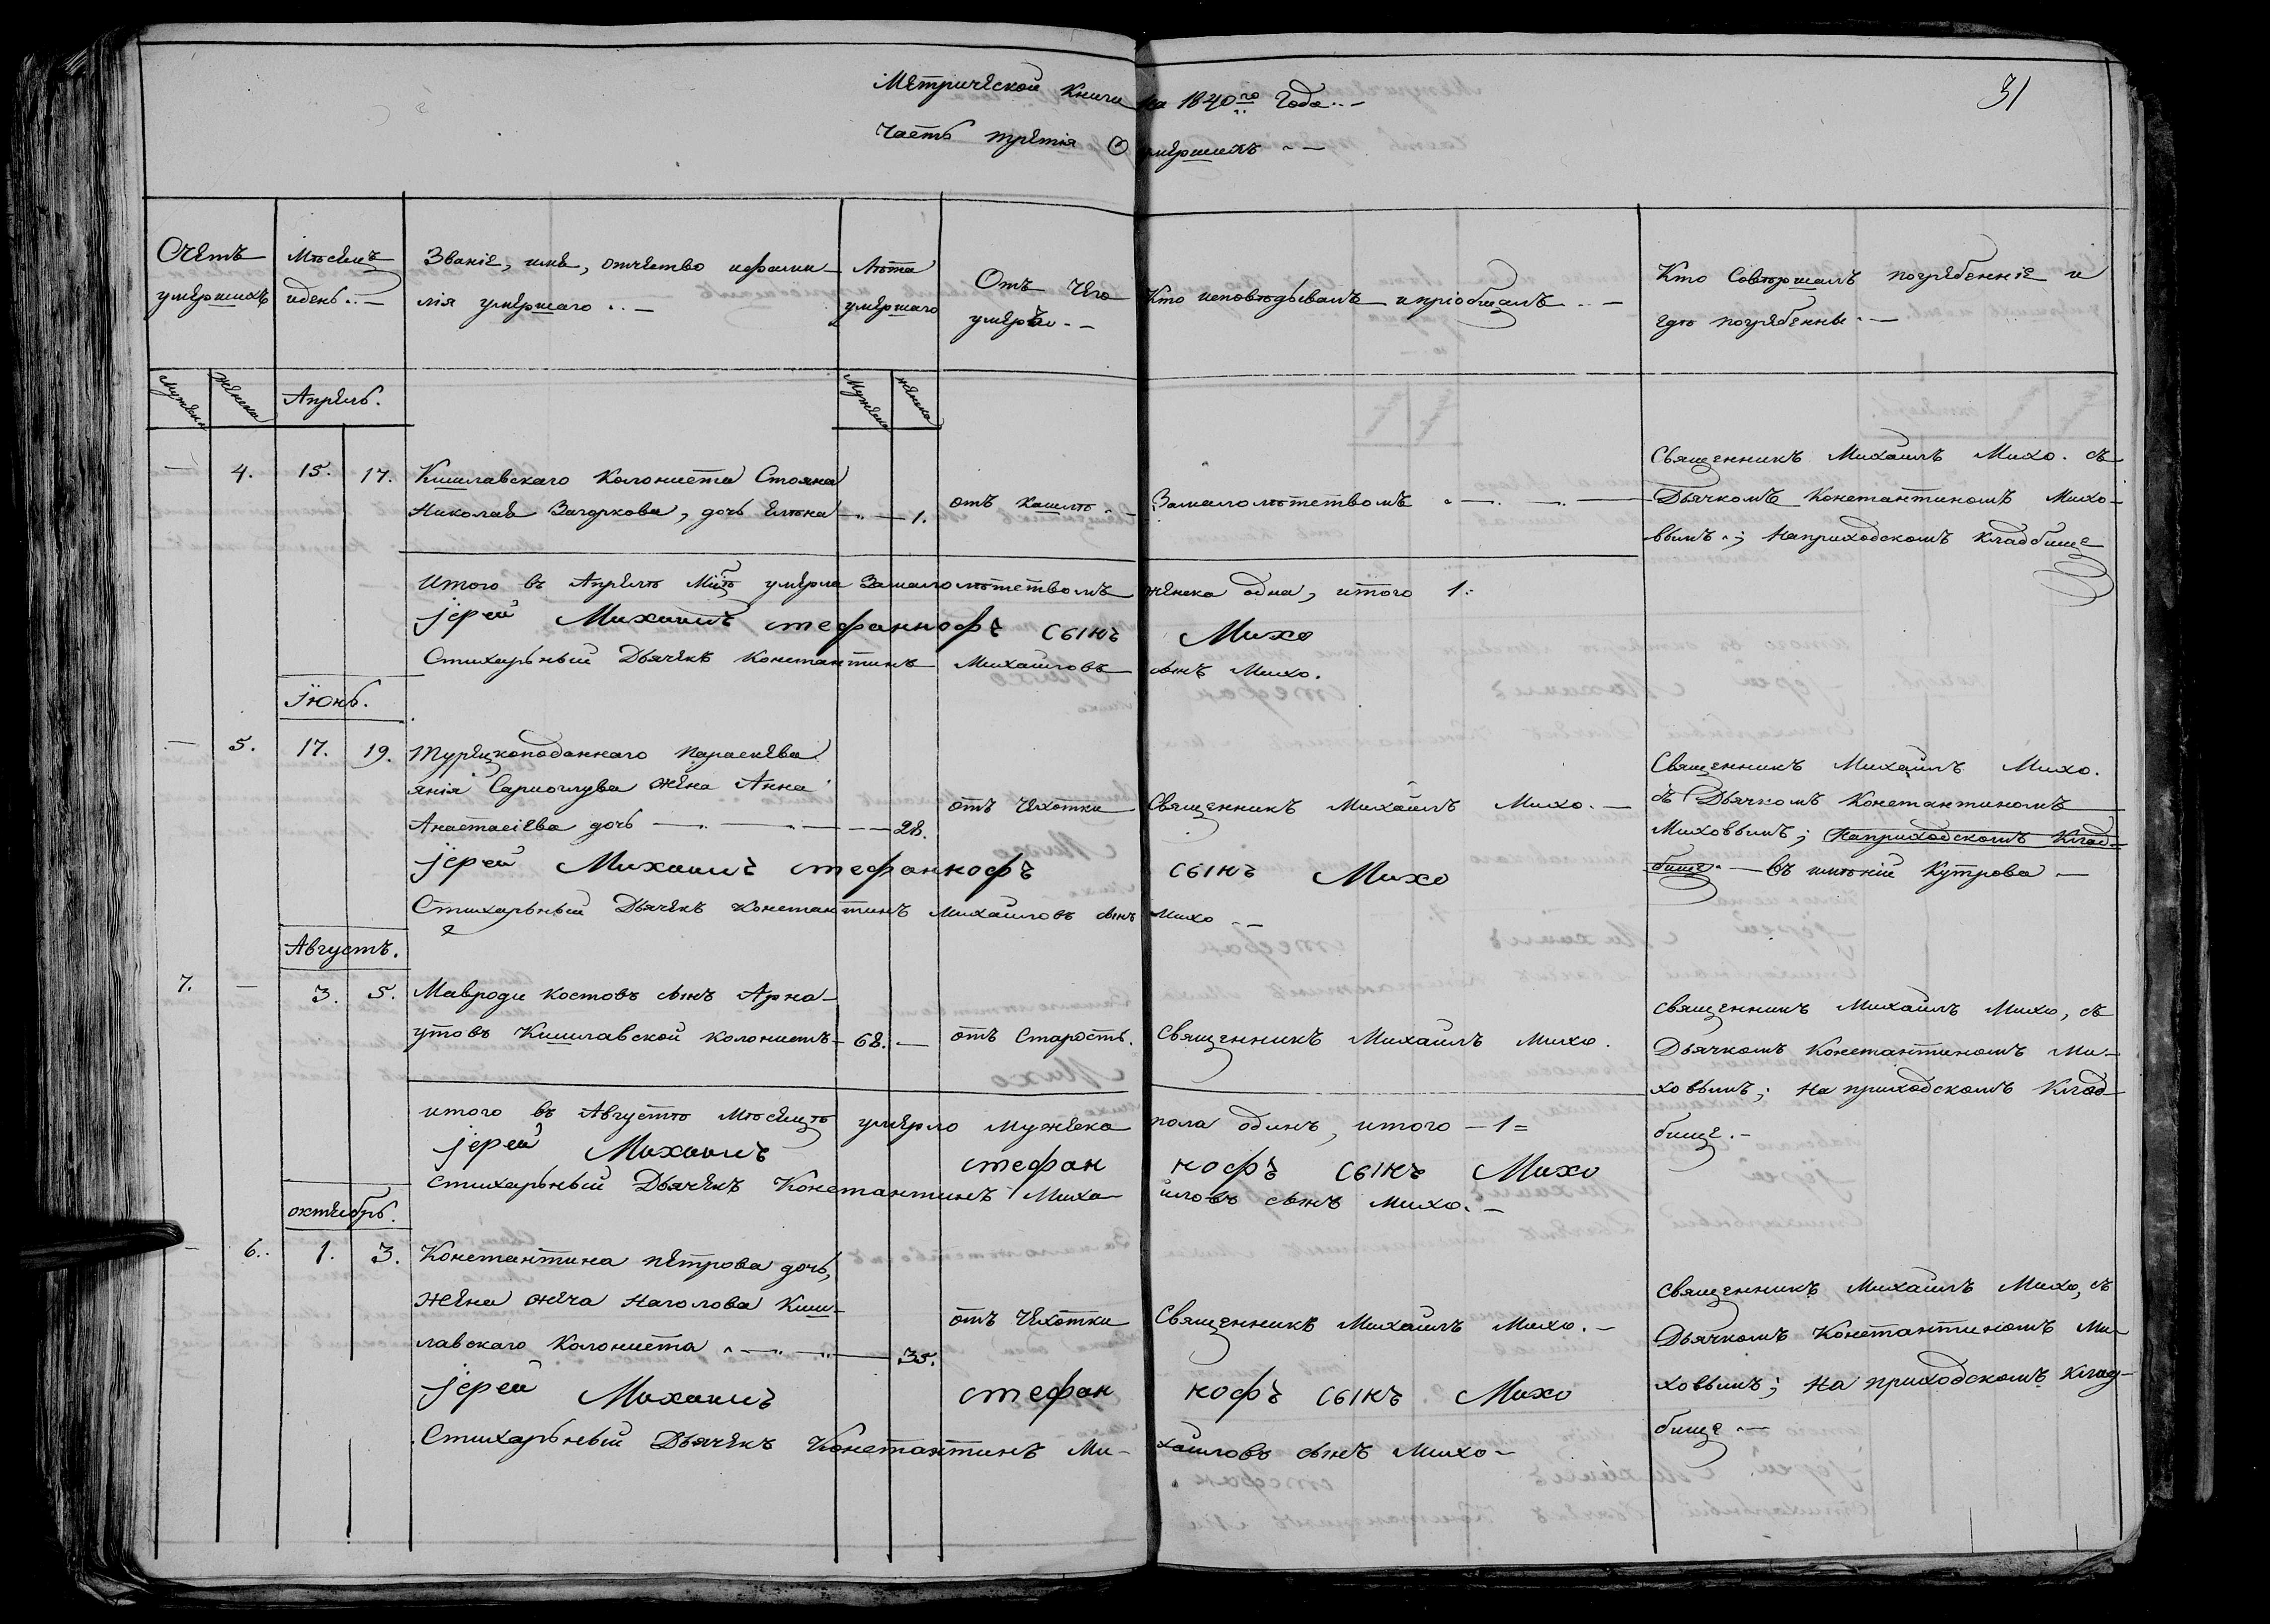 Метрической книги на 1840го Года
31
Часть третія О умершихъ
Счетъ умершихъ
Мѣсецъ идень
Званіе, имя, отчество ифами-
лія умершаго
Лѣта умершаго
Отъ чего умеръ
Кто исповѣдывалъ ипріобщалъ
Кто Совершалъ погребенніе и
гдѣ погребенны
Мужеска
Женска
Апрель.
Мужеска
женска
— 4. 15. 17. Кишлавскаго Колониста Стояна
Николая Загоркова, дочь Елѣна — 1. отъ кашлѣ Замалолѣтетвомъ
Священникъ Михаилъ Михо. съ
Дьячкомъ Констатиномъ Михо-
вымъ; Наприходскомъ кладбище
Итого въ Апрелѣ Мцѣ умерла Замалолѣтетвомъ женска одна, итого 1.
Іерей Михаилъ стефанкофъ сынъ Михо
Стихарьный Дьячекъ Константинъ Михайловъ сынъ Михо.
Іюнь.
— 5. 17. 19. Турецкоподаннаго Параскева
янія жена Анна
Анастасіева дочь — 28. отъ Чехотки Священникъ Михаилъ Михо. —
Священникъ Михаилъ Михо.
съ Дьячкомъ Константиномъ
Миховымъ; Наприходскомъ Клад-
бище. — въ имѣніи Кутрова —
Іерей Михаилъ стефанкофъ сынъ Михо
Стихарьный Дьячекъ Константинъ Михайловъ сынъ Михо —
Августъ.
7. — 3. 5. Мавроди Костовъ сынъ Арна-
утовъ Кишлавской колонистъ — 68. — отъ Старость. Священникъ Михаилъ Михо.
священникъ Михаилъ Михо, съ
Дьячкомъ Константиномъ Ми-
ховымъ; на приходскомъ Клад-
бище. —
итого въ Августѣ Мѣсецѣ умерло мужеска пола одинъ, итого — 1 =
Іерей Михаилъ стефан кофъ сынъ Михо
Стихарьный Дьячекъ Константинъ Миха- иловъ сынъ Михо. —
октябрь.
— 6. 1. 3. Константина петрова дочь,
Жена Наголова Киш-
лавскаго Колониста — 35. отъ Чехотки Священникъ Михаилъ Михо. —
священникъ Михаилъ Михо, съ
Дьячкомъ Константиномъ Ми-
ховымъ; на приходскомъ клад-
бище —
Іерей Михаилъ стефан кофъ сынъ Михо
Стихарьный Дьячекъ Константинъ Ми- хайловъ сынъ Михо —